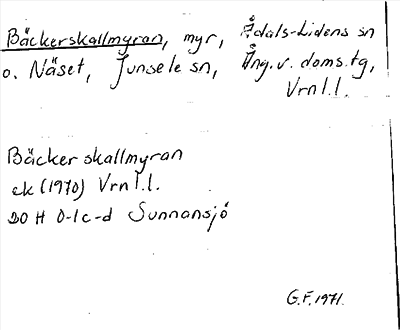 Bäckerskallmyran, myr, Ådals-Lidens sn
o. Näset, Junsele sn, Ång. v. doms.tg,
Vrnl.l.
Bäckerskallmyran
ek (1970) Vrnl.l.
20 H 0-1 c-d Sunnansjö
G.F. 1971.